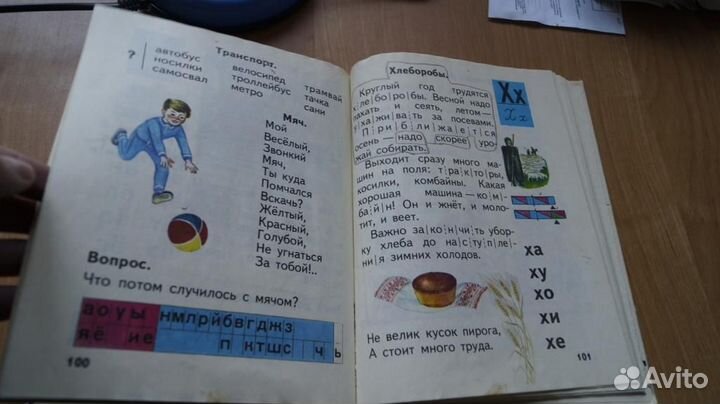 Транспорт.
? автобус велосипед трамвай
носилки троллейбус тачка
самосвал метро сани
Мяч.
Мой
Весёлый,
Звонкий
Мяч,
Ты куда
Помчался
Вскачь?
Жёлтый,
Красный,
Голубой,
Не угнаться
За тобой!..
Вопрос.
Что потом случилось с мячом?
а о у ы н м л р й б в г д ж з
я ё и е п к т ш с ч ь
100
Хлеборобы.
Круглый год трудятся
х|ле|бо|ро|бы. Весной надо
пахать и сеять, летом—
у|ха|жи|ва|ть за посевами.
П|р|и|б|ли|жа|е|т|ся
осень—надо скорее уро-
жай собирать.
Выходит сразу много ма-
шин на поля: т|ра|к|то|ры,
косилки, комбайны. Какая
хорошая машина—ко|м|-
ба|й|н! Он и жнёт, и моло-
тит, и веет.
Важно за|ко|н|чи|ть убор-
ку хлеба до на|с|ту|п|ле|-
ни|я зимних холодов.
Не велик кусок пирога,
А стоит много труда.
Хх
Хх
ха
ху
хо
хи
хе
101
Avito